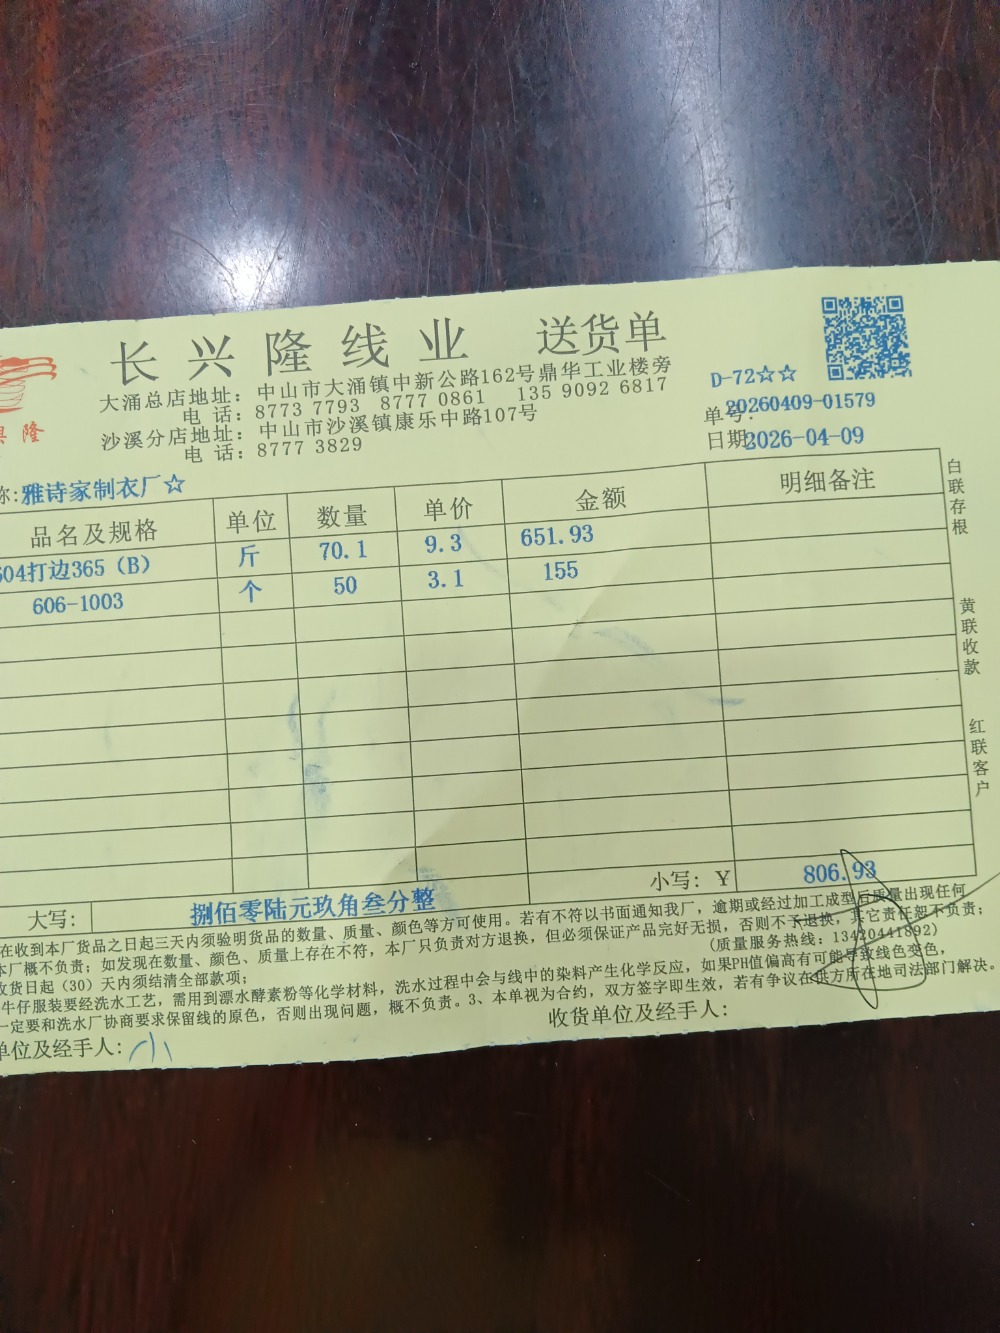 长兴隆线业 送货单
大涌总店地址：中山市大涌镇中新公路162号鼎华工业楼旁
电 话：8773 7793 8777 0861 135 9092 6817
沙溪分店地址：中山市沙溪镇康乐中路107号
电 话：8777 3829
隆
D-72☆☆
单号：20260409-01579
日期2026-04-09
称:雅诗家制衣厂☆
品名及规格 单位 数量 单价 金额 明细备注
604打边365（B） 斤 70.1 9.3 651.93
606-1003 个 50 3.1 155
白联存根
黄联收款
红联客户
小写：Y 806.93
大写： 捌佰零陆元玖角叁分整
在收到本厂货品之日起三天内须验明货品的数量、质量、颜色等方可使用。若有不符以书面通知我厂，逾期或经过加工成型后质量出现任何
本厂概不负责；如发现在数量、颜色、质量上存在不符，本厂只负责对方退换，但必须保证产品完好无损，否则不予退换，其它责任恕不负责；
收货日起（30）天内须结清全部款项； （质量服务热线：13420441892）
牛仔服装要经洗水工艺，需用到漂水酵素粉等化学材料，洗水过程中会与线中的染料产生化学反应，如果PH值偏高有可能导致线色变色，
一定要和洗水厂协商要求保留线的原色，否则出现问题，概不负责。3、本单视为合约，双方签字即生效，若有争议在供方所在地司法部门解决。
单位及经手人： 收货单位及经手人：